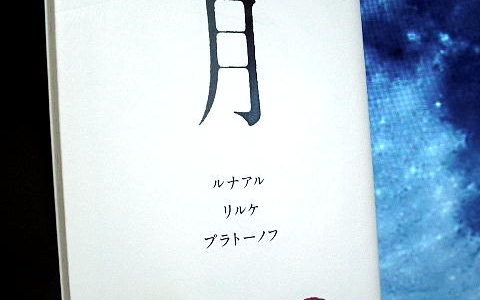 月
ルナアル
リルケ
プラトーノフ